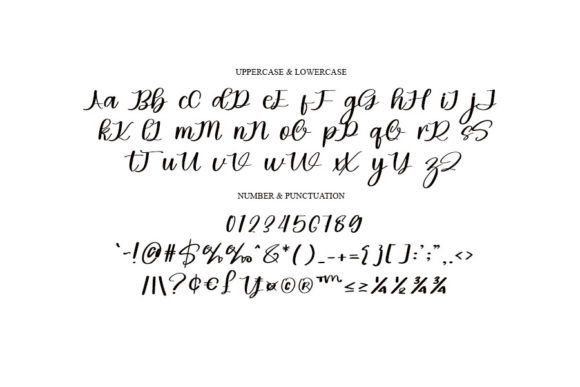 UPPERCASE & LOWERCASE
Aa Bb cC dD eE fF gG hH iI jJ
kK lL mM nN oO pP qQ rR sS
tT uU vV wW xX yY zZ
NUMBER & PUNCTUATION
0123456789
`~!@#$%‰^&*()_-+={}[]:';",.<>
/|\?¢€£¥¤©®™≤≥¼½¾¾